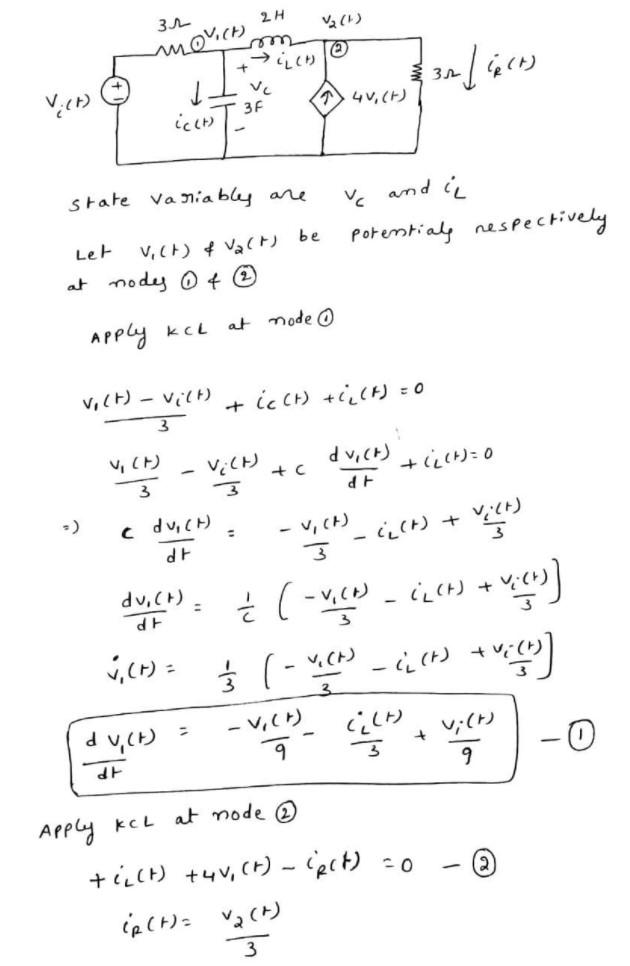 3Ω ① V₁(t) 2H V₂(t)
+ → i_L(t) ②
Vᵢ(t) + − ↓ i_c(t) V_c 3F − ↑ 4V₁(t) 3Ω ↓ i_R(t)
state variables are V_c and i_L
Let V₁(t) & V₂(t) be potentials respectively
at nodes ① & ②
Apply KCL at node ①
(V₁(t) − Vᵢ(t))/3 + i_c(t) + i_L(t) = 0
V₁(t)/3 − Vᵢ(t)/3 + C dV₁(t)/dt + i_L(t) = 0
=) C dV₁(t)/dt = −V₁(t)/3 − i_L(t) + Vᵢ(t)/3
dV₁(t)/dt = 1/C (−V₁(t)/3 − i_L(t) + Vᵢ(t)/3]
V̇₁(t) = 1/3 [−V₁(t)/3 − i_L(t) + Vᵢ(t)/3]
dV₁(t)/dt = −V₁(t)/9 − i_L(t)/3 + Vᵢ(t)/9 — ①
Apply KCL at node ②
+ i_L(t) + 4V₁(t) − i_R(t) = 0 — ②
i_R(t) = V₂(t)/3